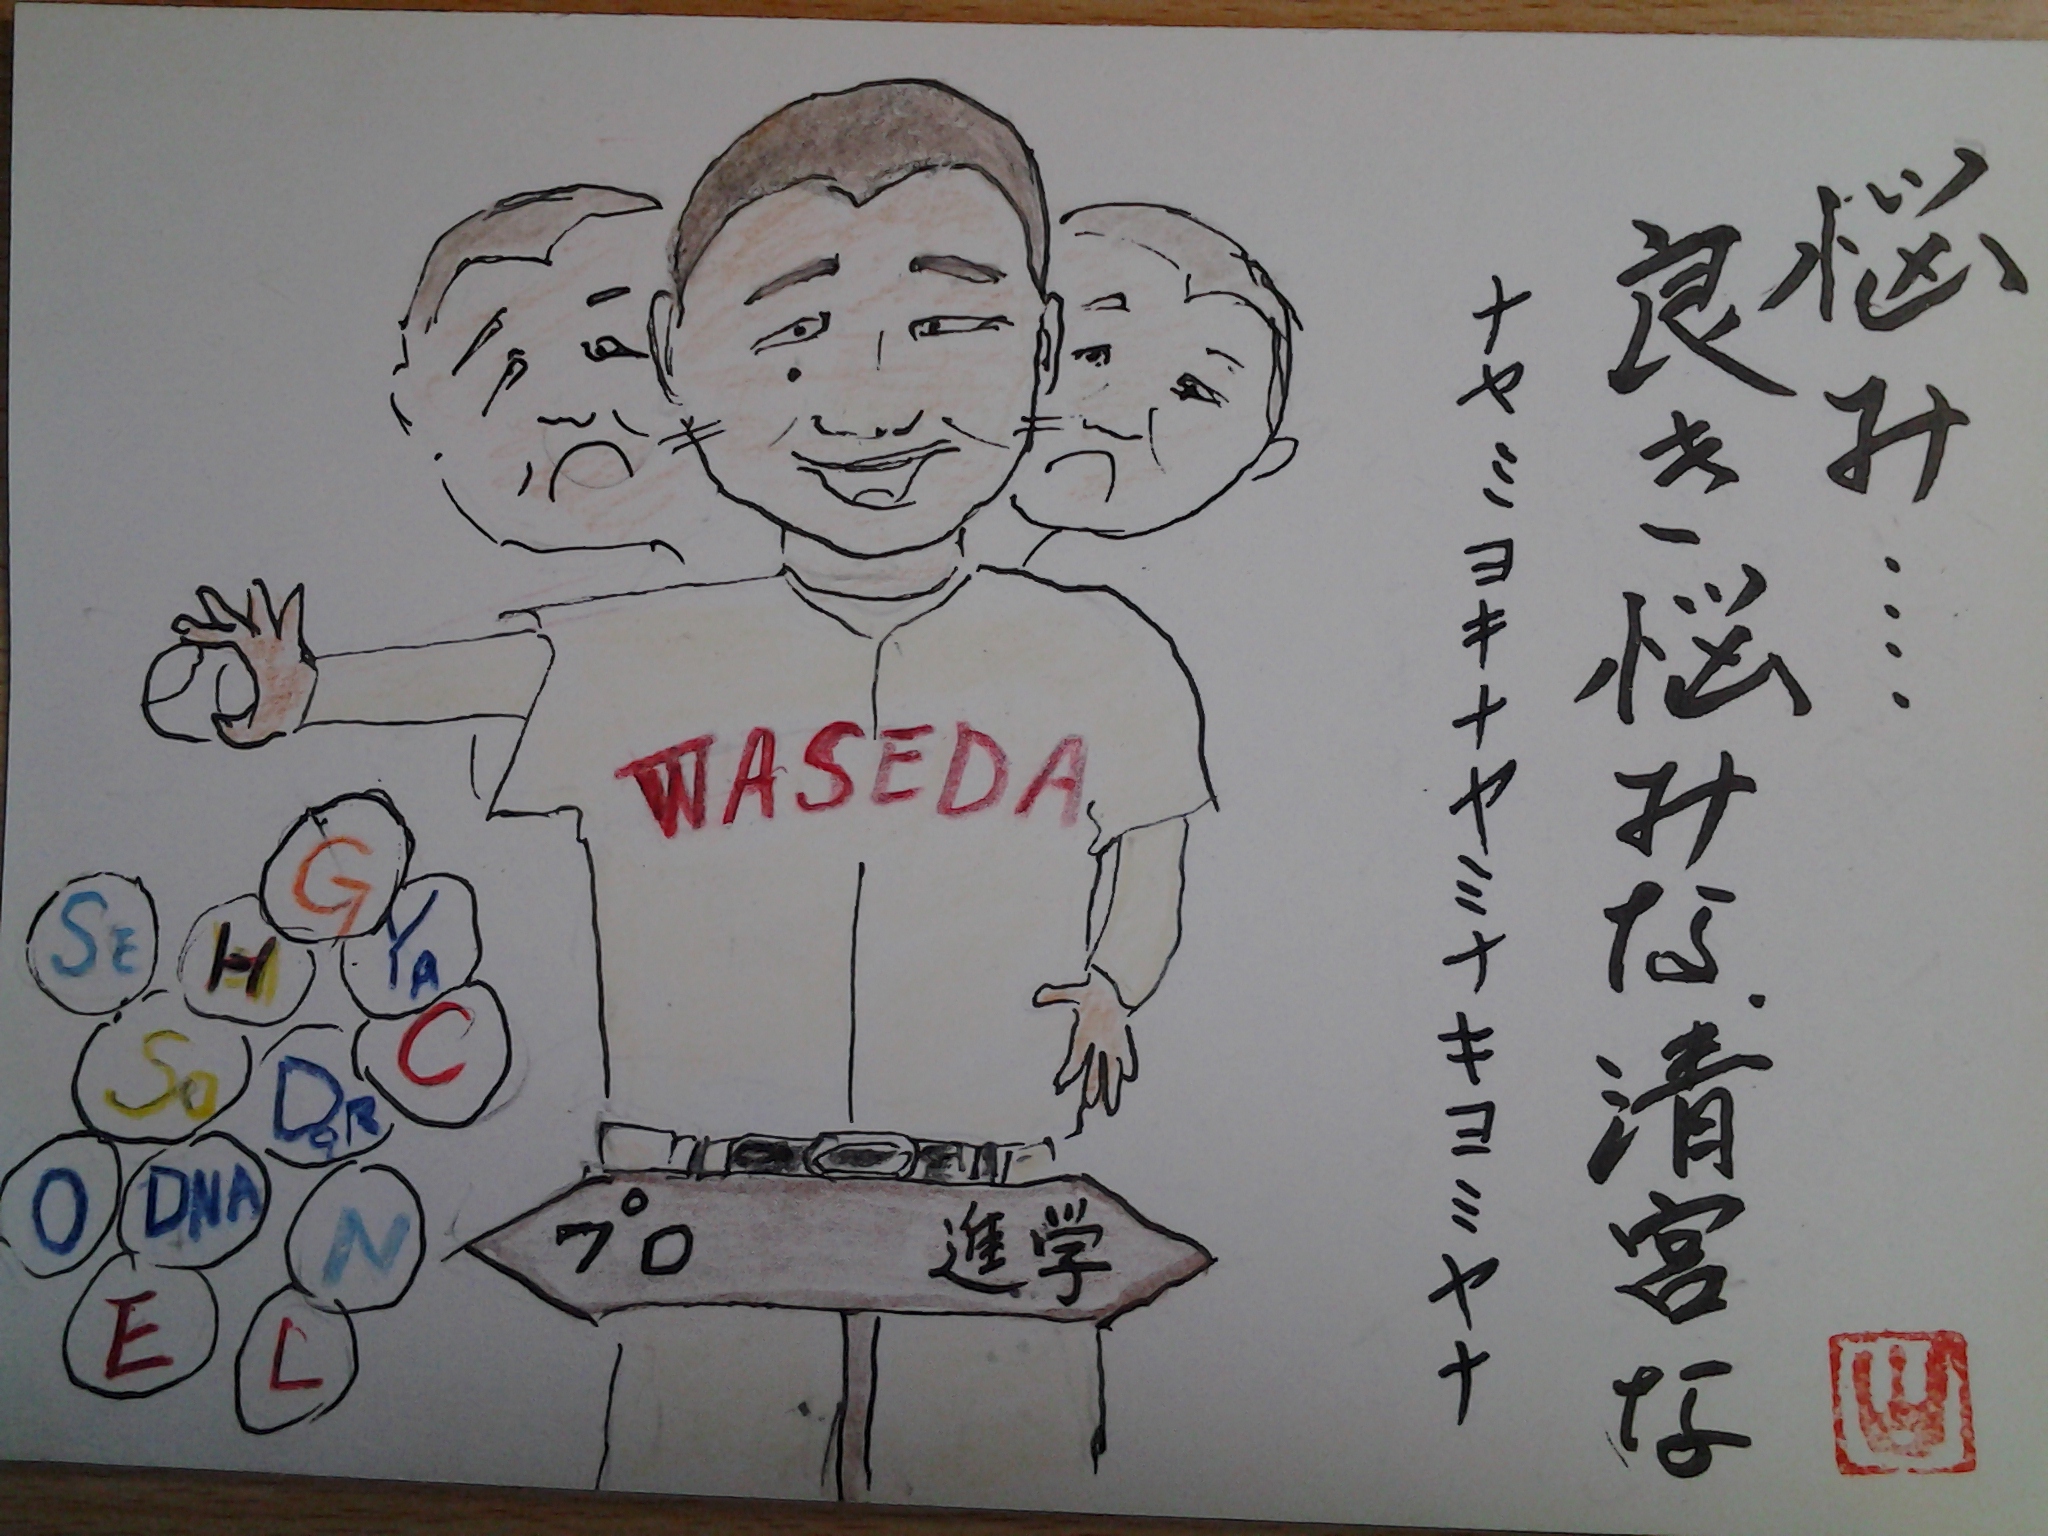 悩み‥‥
良き悩みな清宮な
ナヤミヨキナヤミナキヨミヤナ
WASEDA
プロ 進学
G
SE
H
YA
C
SO
O
DNA
N
E
L